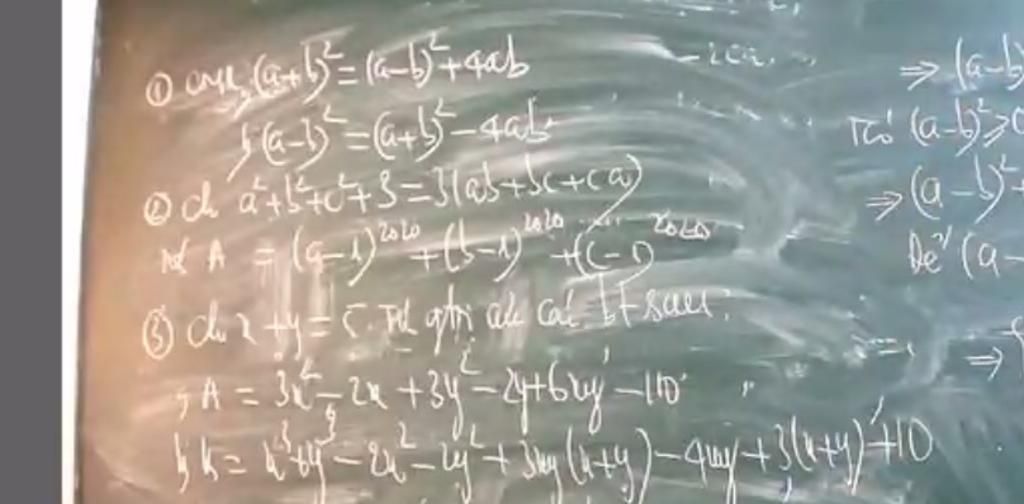 ① CMR: a, (a+b)² = (a-b)² + 4ab
b, (a-b)² = (a+b)² - 4ab
② Cho a²+b²+c²+3 = 3(ab+bc+ca)
A = (a-1)²⁰²⁰ + (b-1)²⁰²⁰ + (c-1)²⁰²⁰
③ Cho x+y=5. Tính gtrị của các BT sau:
A = 3x² - 2x + 3y² - 2y + 6xy - 110
b, = x³+y³ - 2x² - 2y² + 3xy(x+y) - 4xy + 3(x+y) + 10
- 2ca
⇒ (a-b)
(a-b)² ≥ 0
⇒ (a-b)² +
Để (a-
⇒